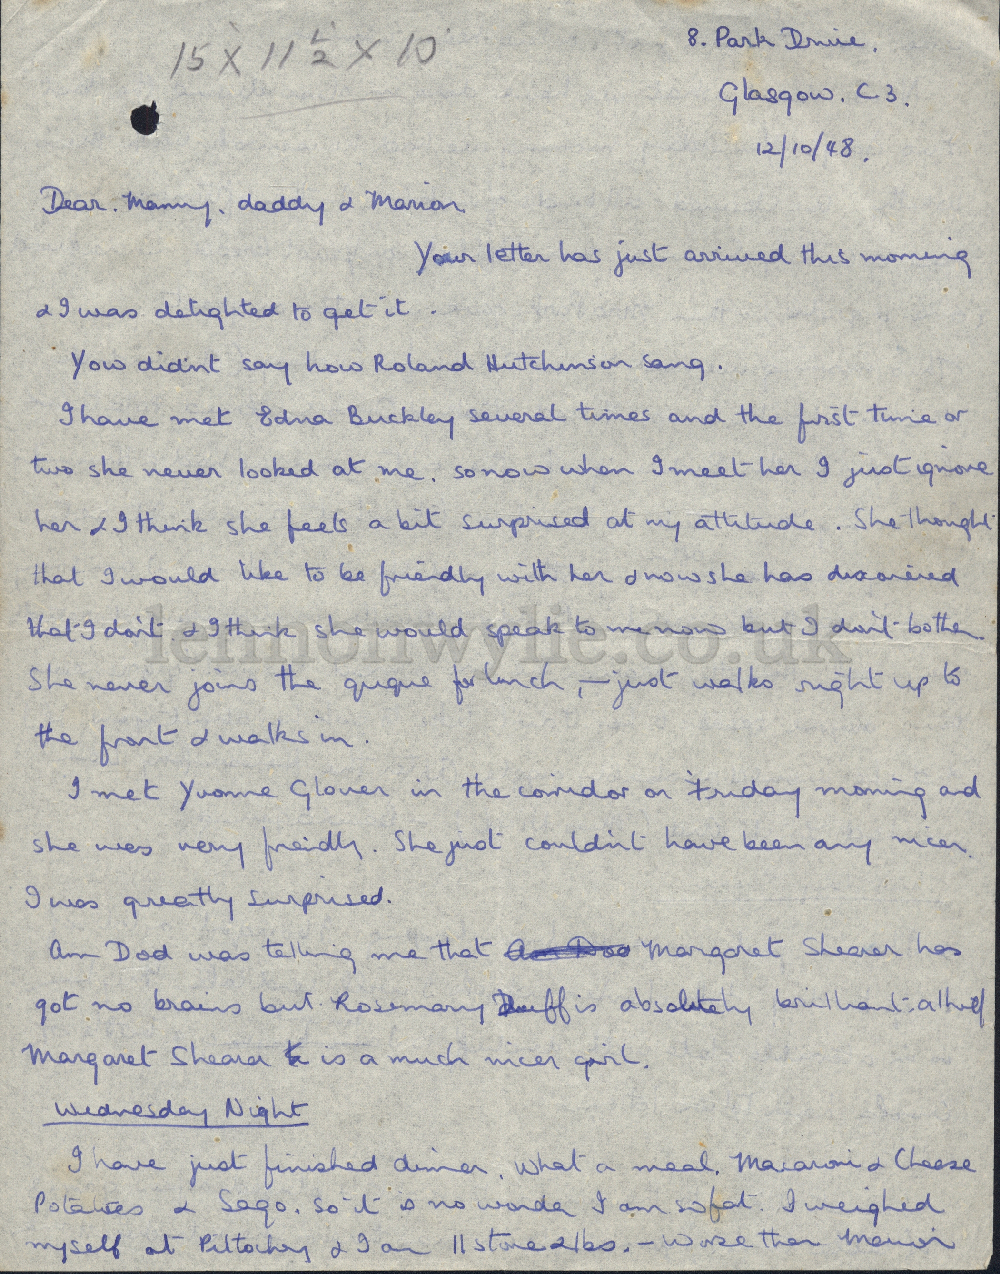 15 x 11 1/2 x 10
8. Park Drive.
Glasgow. C 3.
12/10/48.
Dear. Mammy, daddy & Marion
Your letter has just arrived this morning
& I was delighted to get it.
You didn't say how Roland Hutchinson sang.
I have met Edna Buckley several times and the first time or
two she never looked at me, so now when I meet her I just ignore
her & I think she feels a bit surprised at my attitude. She thought
that I would like to be friendly with her & now she has discovered
that I don't & I think she would speak to me now but I don't bother
She never joins the queue for lunch, – just walks right up to
the front & walks in.
I met Yvonne Glover in the corridor on Friday morning and
she was very freidly. She just couldn't have been any nicer.
I was greatly surprised.
Ann Dod was telling me that Margaret Shearer has
got no brains but Rosemary Duff is absolutely brilliant – altho'
Margaret Shearer is a much nicer girl.
Wednesday Night
I have just finished dinner, what a meal. Macaroni & Cheese
Potatoes & Sago. so it is no wonder I am so fat. I weighed
myself at Pitlochry & I am 11 stone 2 lbs. – Worse than Marion
lennonwylie.co.uk